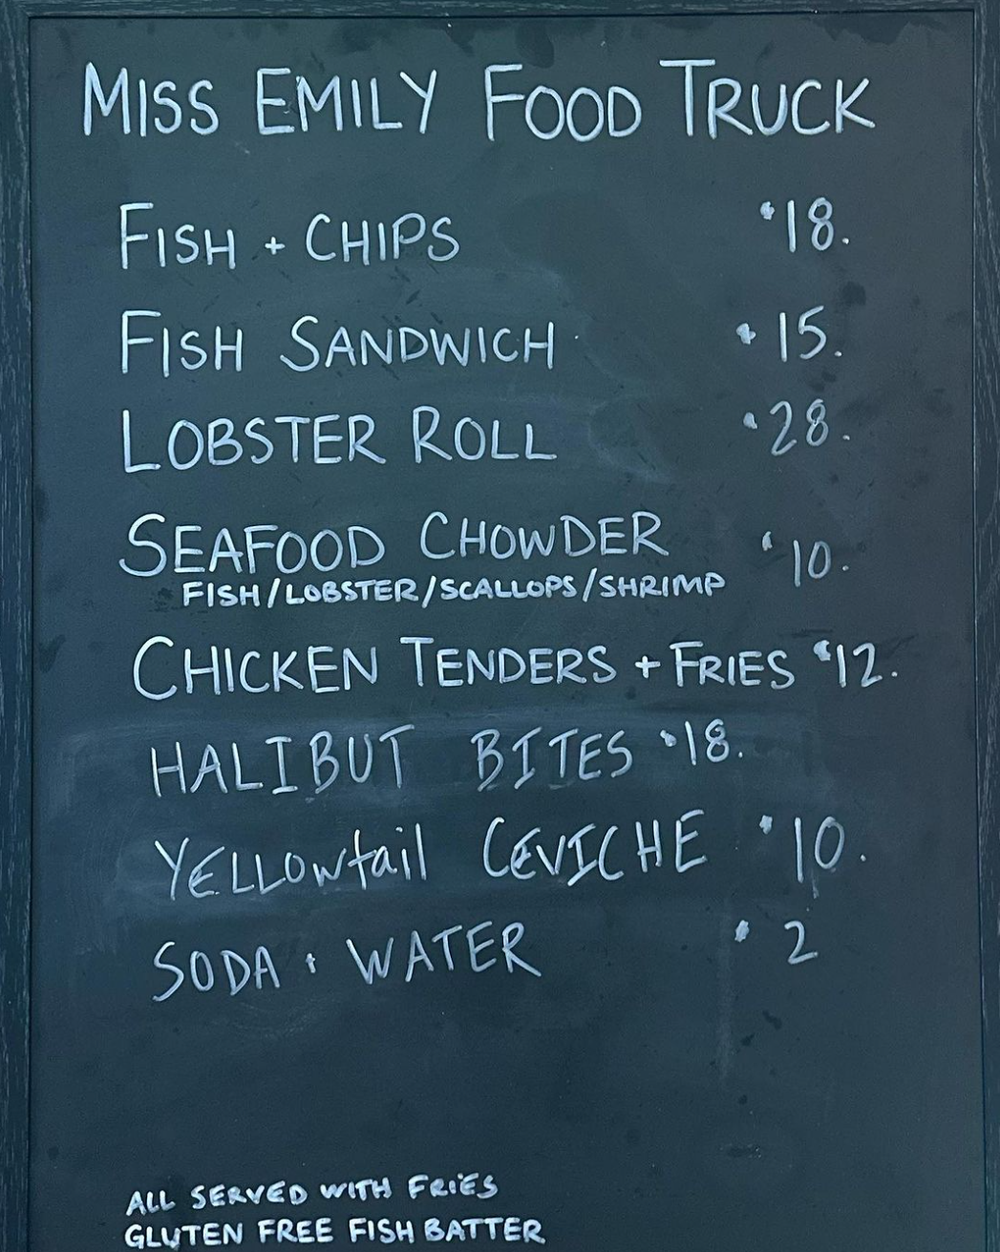 MISS EMILY FOOD TRUCK
FISH + CHIPS $18.
FISH SANDWICH $15.
LOBSTER ROLL $28.
SEAFOOD CHOWDER $10.
FISH/LOBSTER/SCALLOPS/SHRIMP
CHICKEN TENDERS + FRIES $12.
HALIBUT BITES $18.
YELLOWtail CEVICHE $10.
SODA + WATER $2
ALL SERVED WITH FRIES
GLUTEN FREE FISH BATTER